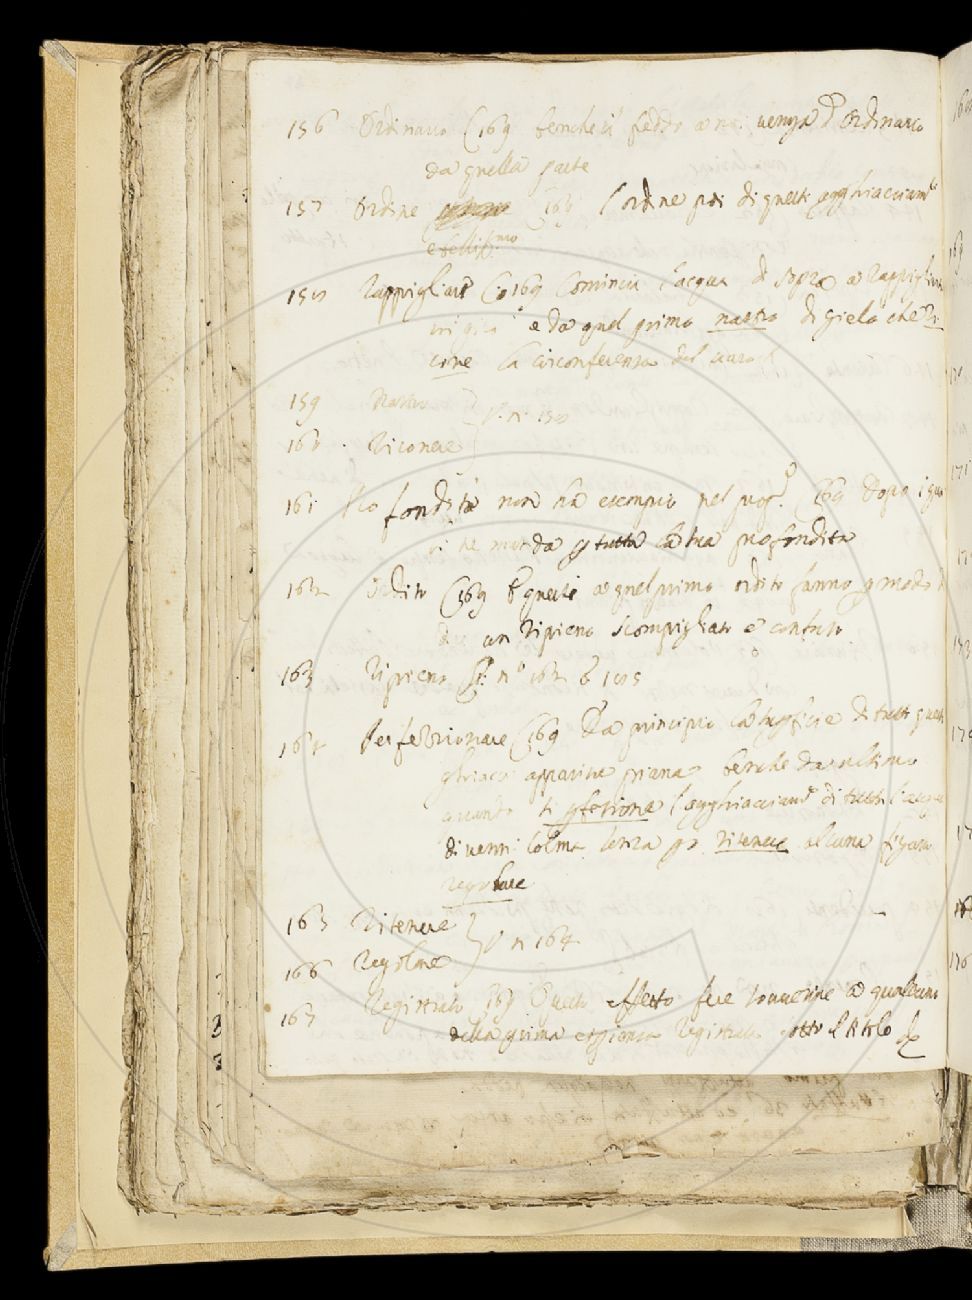 156 Ordinario (169 benche il freddo a noi venga d'Ordinario
da quella parte
157 Ordine 168 l'ordine poi di questi agghiacciam.ti
è bellis.mo
158 Rappigliare 169 Cominciò l'acqua di sopra a rappigliarsi
e da quel primo nastro di gielo che ri
corre la circonferenza del vaso
159 Nastro
V. n.° 158
160 Ricorrere
161 Profondità non ha esempio nel 169 Dopo i qua
li ne manda p tutta la sua profondità
162 Ordito (169 E questi a quel primo ordito fanno p modo d
un ripieno scompigliato e confuso
163 Ripieno V. n° 162 e 185
164 Perfezzionare (169 Da principio la supficie di tutti questi
ghiacci apparisce piana benche da ultimo
quando si pfeziona l'agghiacciam.to di tutta l'acqua
divenni colma senza pò ritenere alcuna figura
regolare
165 Ritenere
V n 164
166 Regolare
167 Registrato 169 Questo effetto fece souvenire a qualcuno
della prima esperienza registrata sotto il titolo